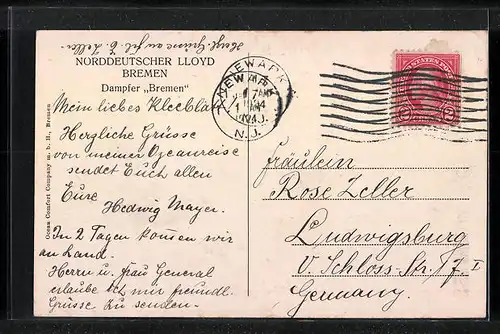 Herzl. Grüsse an frl. E. Zeller.
NORDDEUTSCHER LLOYD
BREMEN
Dampfer „Bremen"
Mein liebes Kleeblatt
Herzliche Grüsse
von meiner Ozeanreise
sendet Euch allen
Eure
Hedwig Mayer.
In 2 Tagen kommen wir
an Land.
Herrn u. Frau General
erlaube ich mir freundl.
Grüsse zu senden.
Ocean Comfort Company m. b. H., Bremen
NEWARK
N.J.
Fräulein
Rose Zeller
Ludwigsburg
V. Schloss-Str.
Germany.